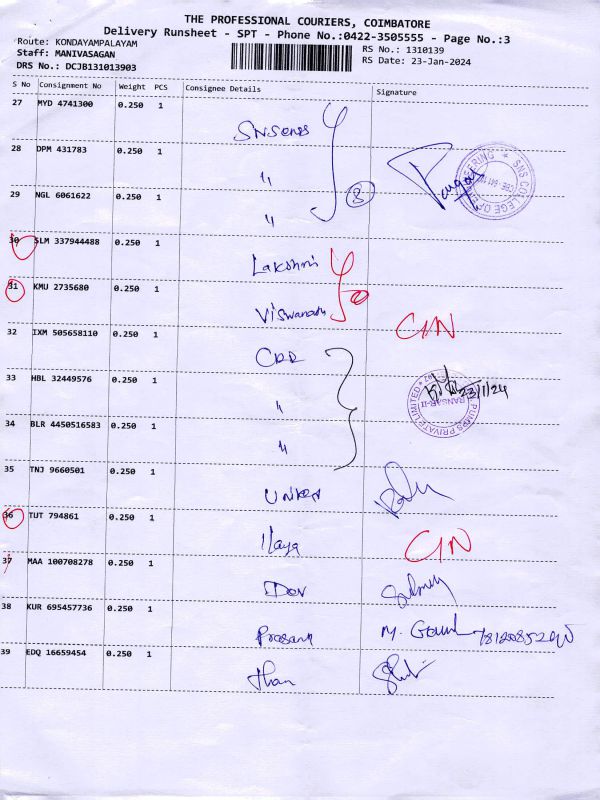 THE PROFESSIONAL COURIERS, COIMBATORE
Delivery Runsheet - SPT - Phone No.:0422-3505555 - Page No.:3
Route: KONDAYAMPALAYAM
RS No.: 1310139
Staff: MANIVASAGAN
RS Date: 23-Jan-2024
DRS No.: DCJB131013903
S No Consignment No Weight PCS Consignee Details Signature
27 MYD 4741300 0.250 1
28 DPM 431783 0.250 1
3
29 NGL 6061622 0.250 1
SNS COLLEGE OF
30 SLM 337944488 0.250 1
Lakshmi
31 KMU 2735680 0.250 1
Viswanath
32 IXM 505658110 0.250 1
CRR
33 HBL 32449576 0.250 1
23/1/24
PUMPS PRIVATE LIMITED
34 BLR 4450516583 0.250 1
35 TNJ 9660501 0.250 1
36 TUT 794861 0.250 1
Ilaya
37 MAA 100708278 0.250 1
Dev
38 KUR 695457736 0.250 1
Prasana
39 EDQ 16659454 0.250 1